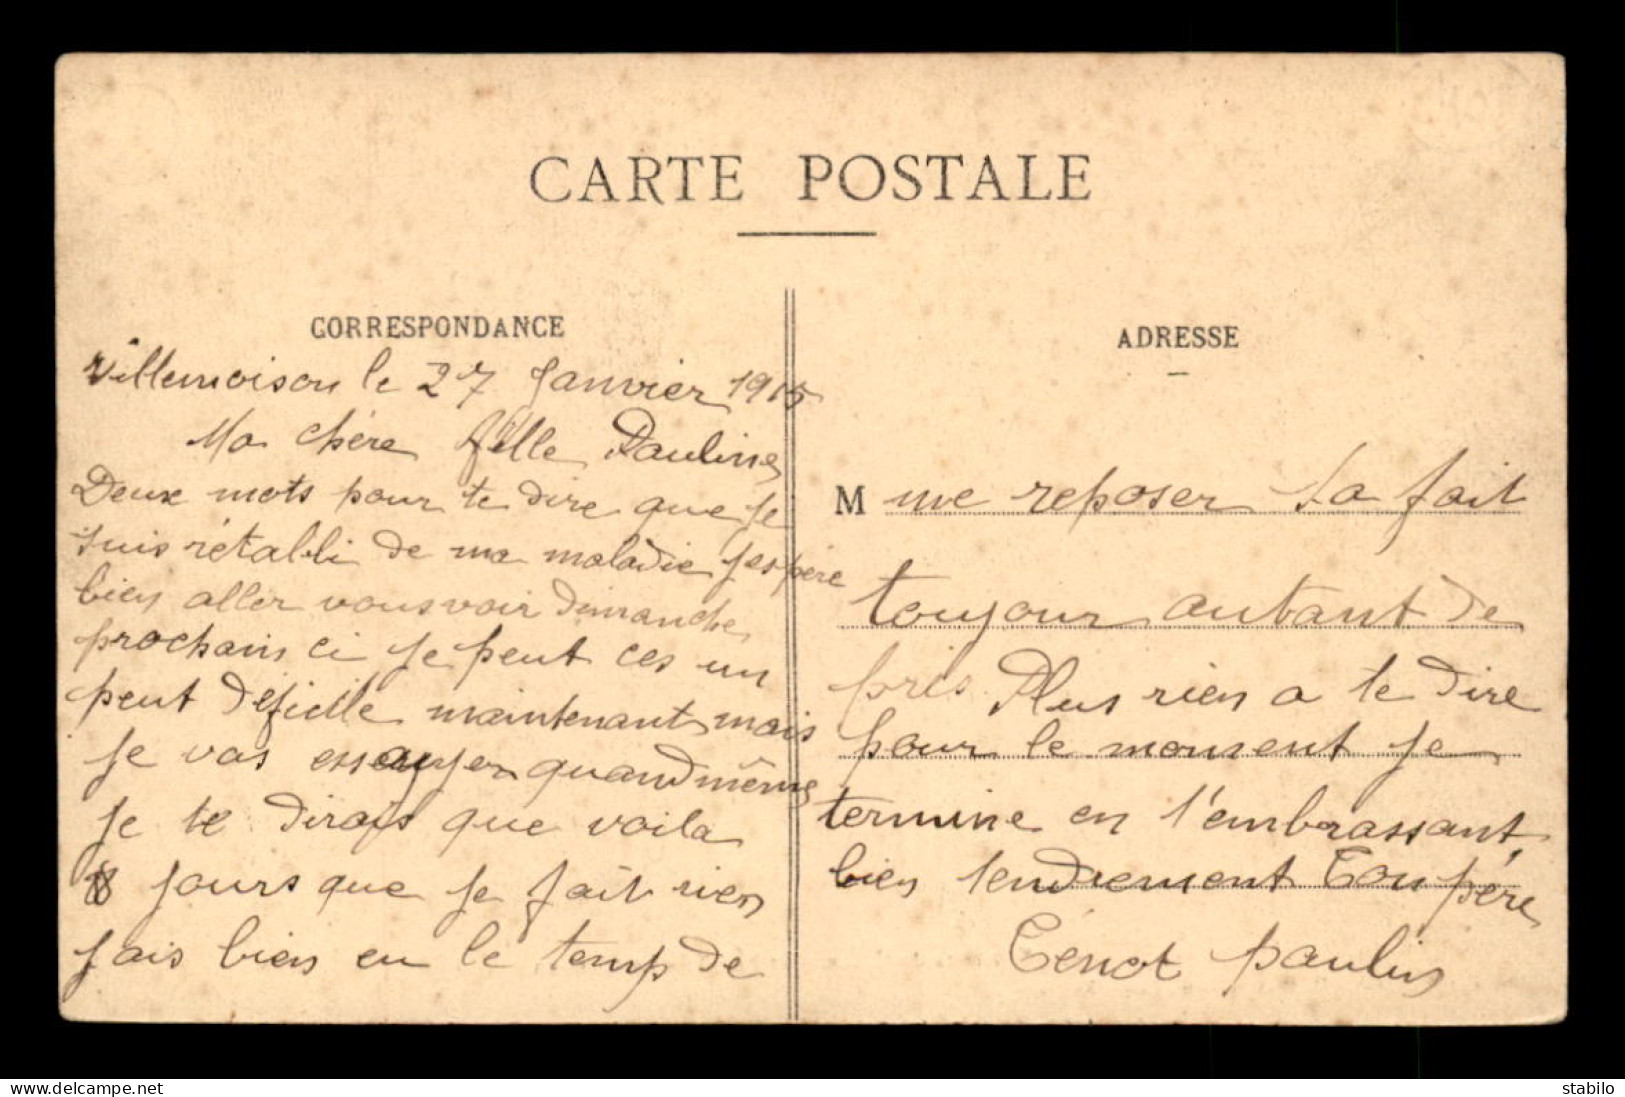 CARTE POSTALE
CORRESPONDANCE
Villemoison le 27 Janvier 1915
Ma chère fille Pauline
Deux mots pour te dire que je
suis rétabli de ma maladie jespère
bien aller vous voir dimanche
prochain ci je peut ces un
peut déficille maintenant mais
je vas essayer quand même
je te dirais que voila
8 jours que je fait rien
jais bien eu le temp de
ADRESSE
M me reposer sa fait
toujour autant de
pris. Plus rien a te dire
pour le moment je
termine en t'embrassant
bien tendrement Ton père
Tenot paulin
www.delcampe.net
stabilo